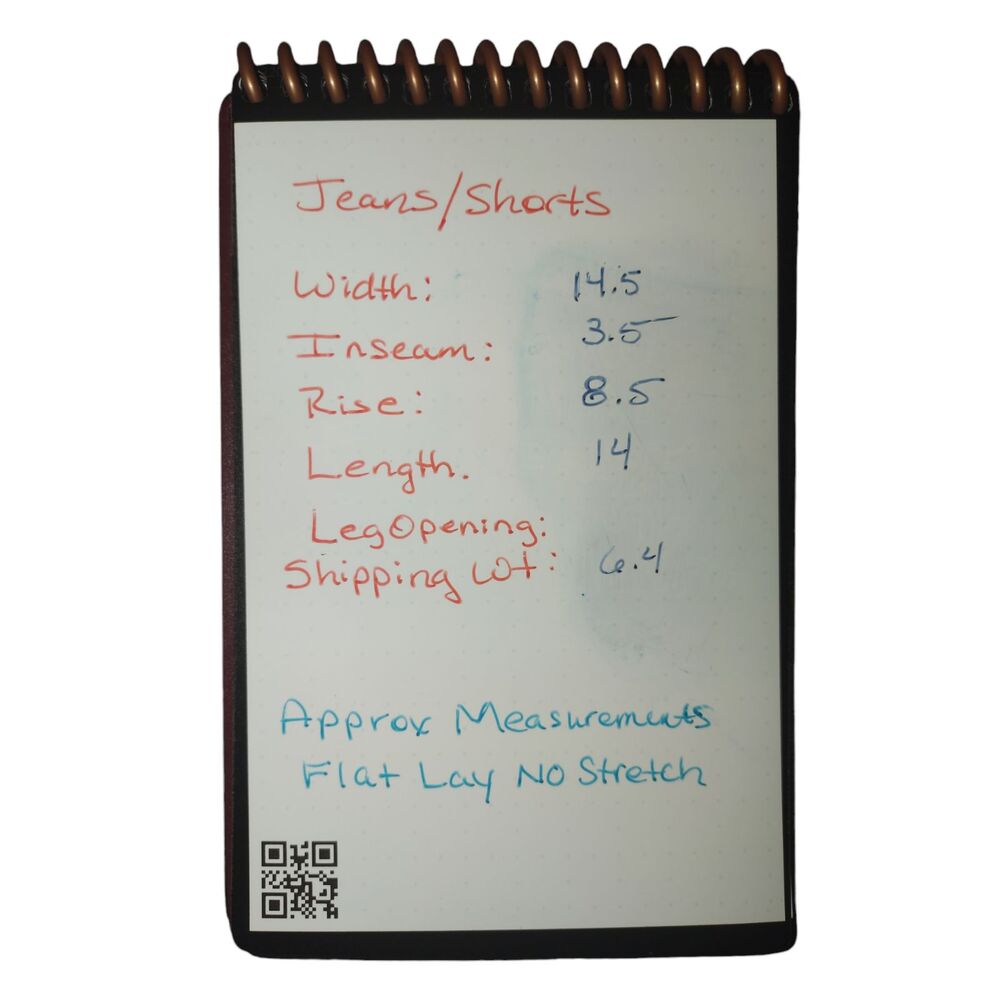 Jeans/Shorts
Width: 14.5
Inseam: 3.5
Rise: 8.5
Length. 14
Leg Opening:
Shipping Wt: 6.4
Approx Measurements
Flat Lay No Stretch